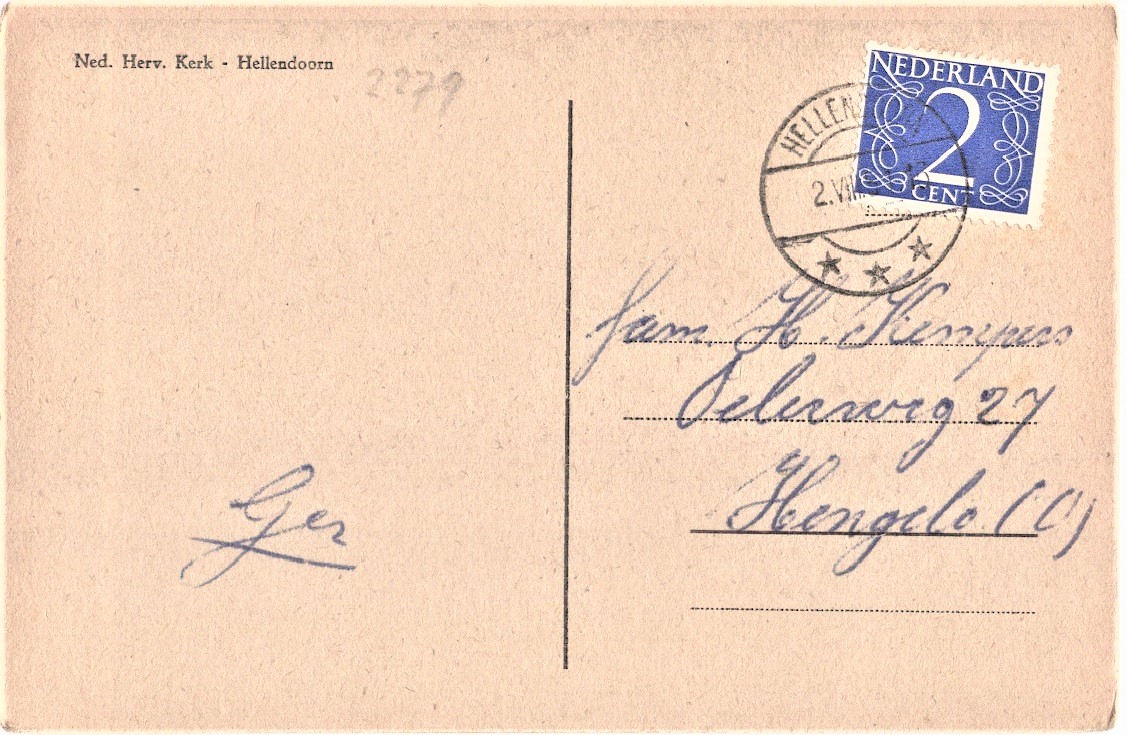 Ned. Herv. Kerk - Hellendoorn
2279
NEDERLAND
2
CENT
2.VIII
fam. H. Kempers
Oelerweg 27
Hengelo (O)
Ger